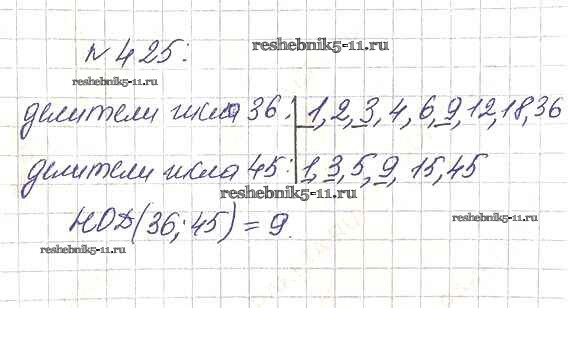 № 425:
reshebnik5-11.ru
reshebnik5-11.ru
делители числа 36: 1, 2, 3, 4, 6, 9, 12, 18, 36
делители числа 45: 1, 3, 5, 9, 15, 45
reshebnik5-11.ru
НОД(36; 45) = 9.
reshebnik5-11.ru
reshebnik5-11.ru